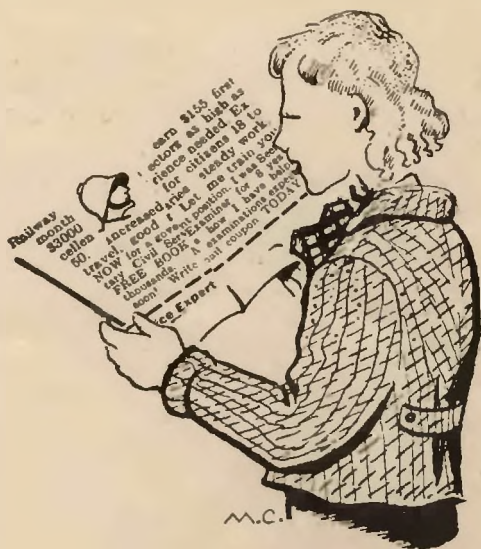 Railway earn $155 first
month ectors as high as
$3000 rience needed. Ex
cellen for citizens 18 to
60. increased, steady work
travel, good ries Let me train you
NOW for a govent position. I was Secre
tary Civil Serv Examiner for 8 yea
FREE BOOK. have help
thousands. examinations expec
soon. Write mail coupon TODAY
ce Expert
M.C.